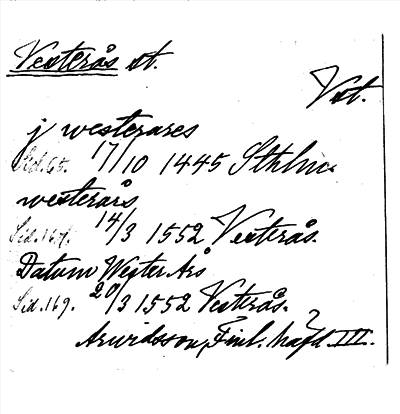 Vesterås st.
Vst.
j westerares
Sid. 65. 17/10 1445 Sthlm.
westerars
Sid. 167. 14/3 1552 Vesterås.
Datum Wester Års
Sid. 169. 20/3 1552 Vesterås.
Arwidsson, Finl. häfd. III.